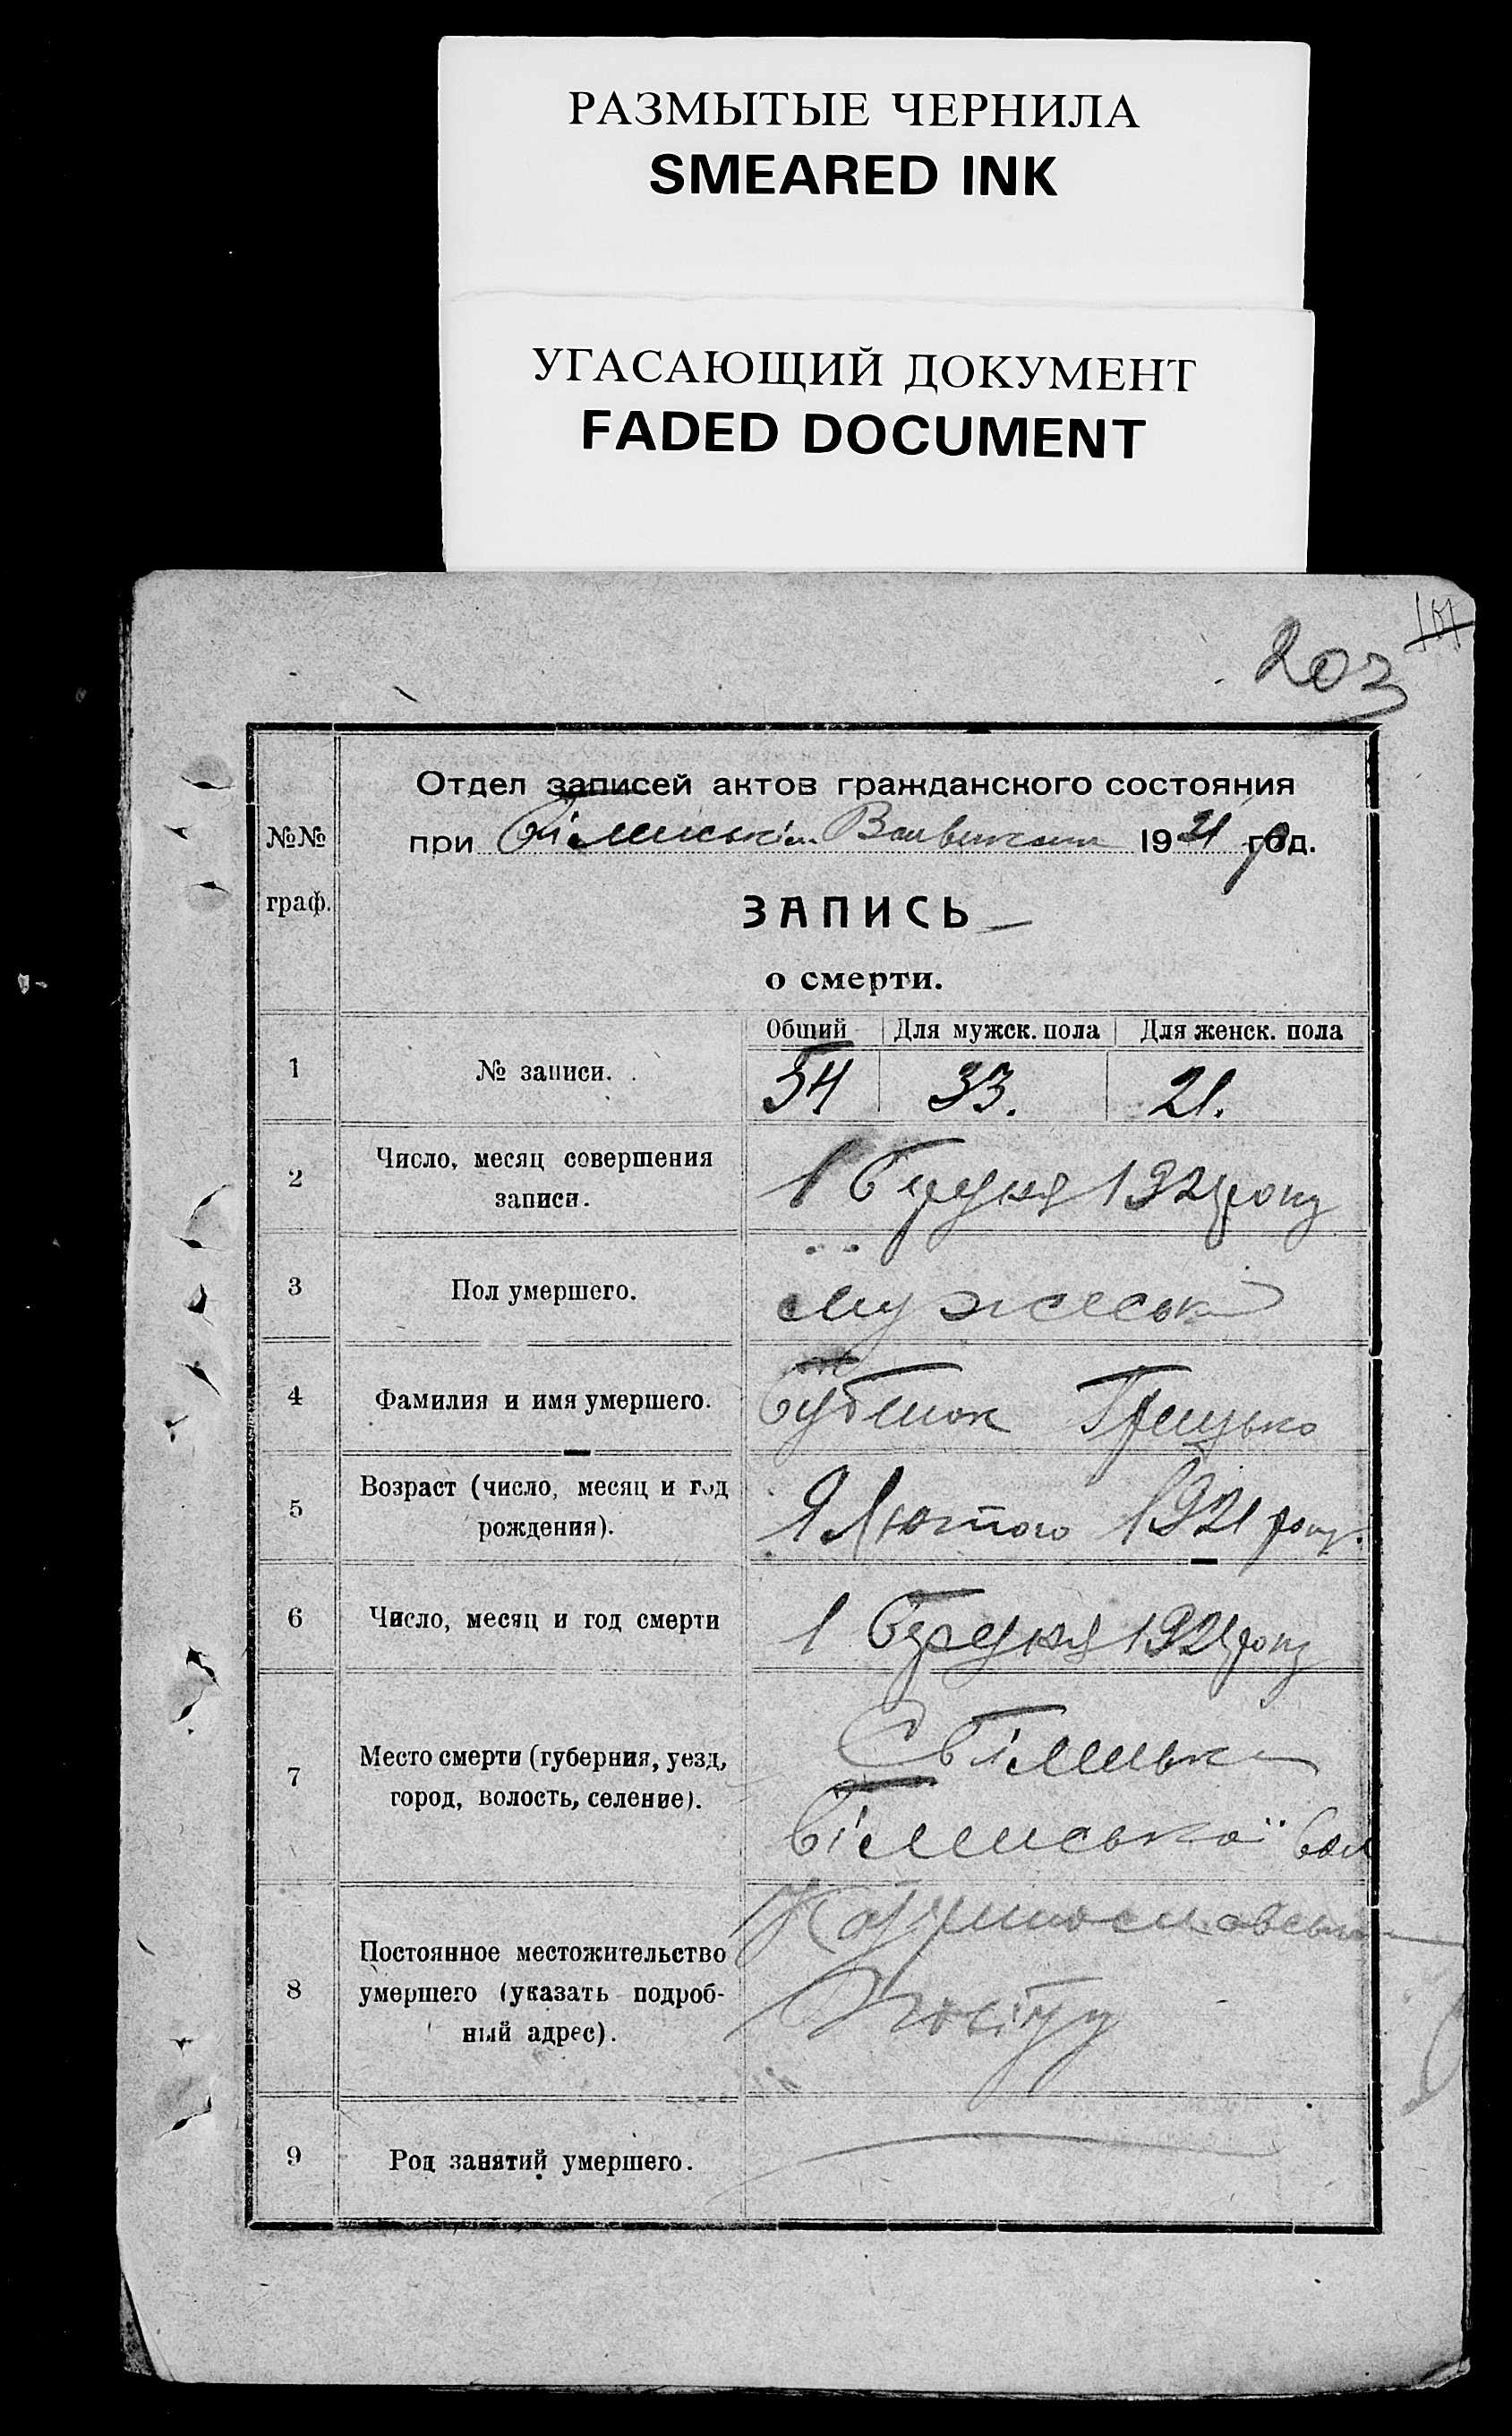 РАЗМЫТЫЕ ЧЕРНИЛА
SMEARED INK
УГАСАЮЩИЙ ДОКУМЕНТ
FADED DOCUMENT
203
Отдел записей актов гражданского состояния
№№ граф.
при 1921 год.
ЗАПИСЬ
о смерти.
Общий Для мужск. пола Для женск. пола
1 № записи. 54 33. 21.
2 Число, месяц совершения записи. 1 Грудня 1921 року
3 Пол умершего.
4 Фамилия и имя умершего. Грицько
5 Возраст (число, месяц и год рождения). 9 Лютого 1921 року.
6 Число, месяц и год смерти 1 Грудня 1921 року
7 Место смерти (губерния, уезд, город, волость, селение). вол
8 Постоянное местожительство умершего (указать подроб-
ный адрес). Повіту
9 Род занятий умершего.